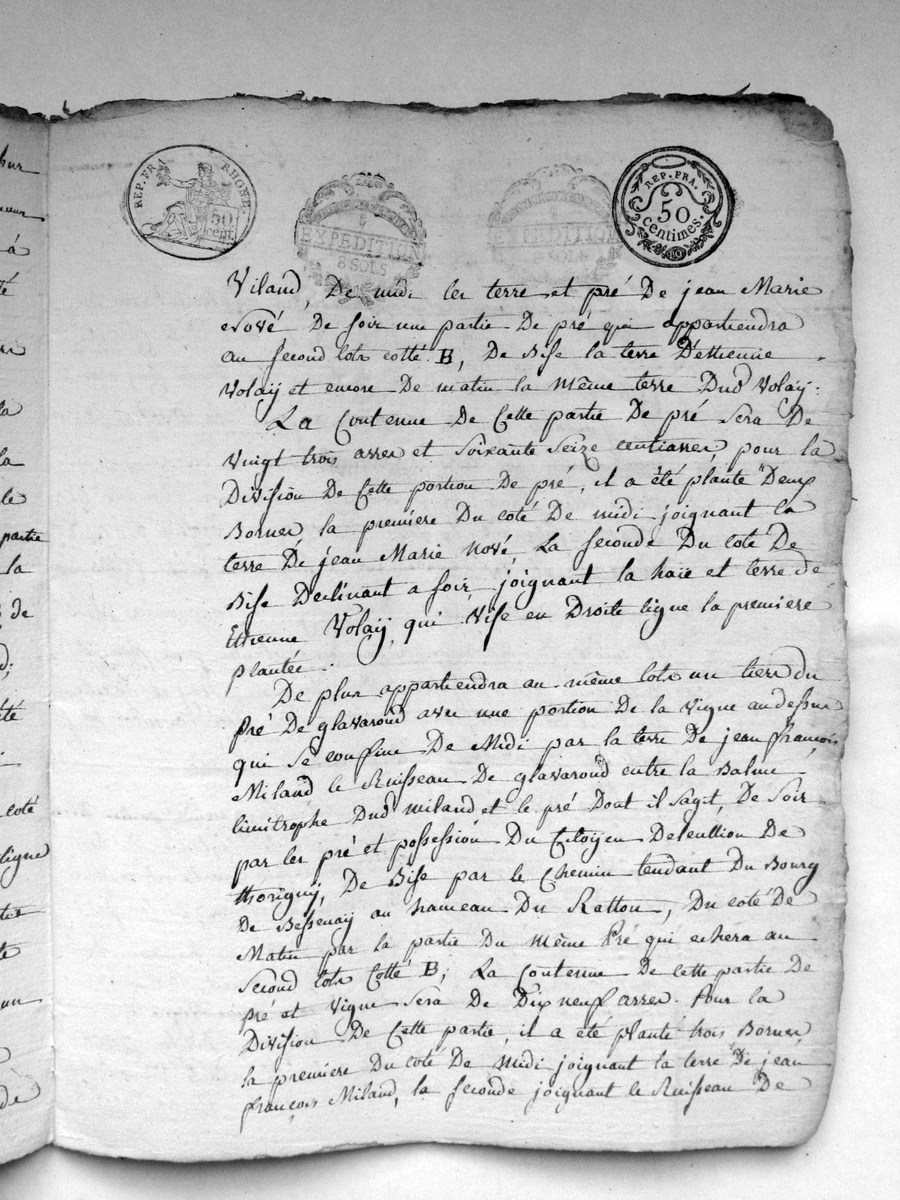 REP. FRA. RHONE.
50
cent.
EXPEDITION
8 SOLS
EXPEDITION
8 SOLS
REP. FRA.
50
Centimes.
Viland, De midi les terre et pré De jean Marie
Nové De soir une partie De pré qui appartiendra
au second lots cotté B, De Bise la terre D'ethienne
Volaÿ et encore De matin la même terre Dud Volaÿ.
La Contenue De Cette partie De pré sera De
Vingt trois arres et soixante seize centiarres, pour la
Division De Cette portion De pré, il a été planté Deux
Bornes la premiere Du coté De midi joignant la
terre De jean Marie Nové, La seconde Du coté De
Bise Declinant a soir, joignant la haïe et terre de
Ettienne Volaÿ, qui Vise en Droite ligne la premiere
plantée.
De plus appartiendra au même lots un tiers du
Pré De glavaroud avec une portion De la vigne au dessus
qui se confine De Midi par la terre De jean françois
Miland le Ruisseau De glavaroud entre la Balme
limitrophe Dud miland et le pré Dont il sagit, De soir
par les pré et possession Du Citoyen Delenllion De
thorigny, De Bise par le Chemin tendant Du Bourg
De Bessenaÿ au hameau Du Ratton, Du coté De
Matin par la partie Du même Pré qui echera au
second lots Cotté B; La Contenue De cette partie De
pré et Vigne sera De Dix neuf arres. Pour la
Division De Cette partie, il a été planté trois Bornes,
la premiere Du coté De midi joignant la terre De jean
françois Miland, la seconde joignant le Ruisseau De